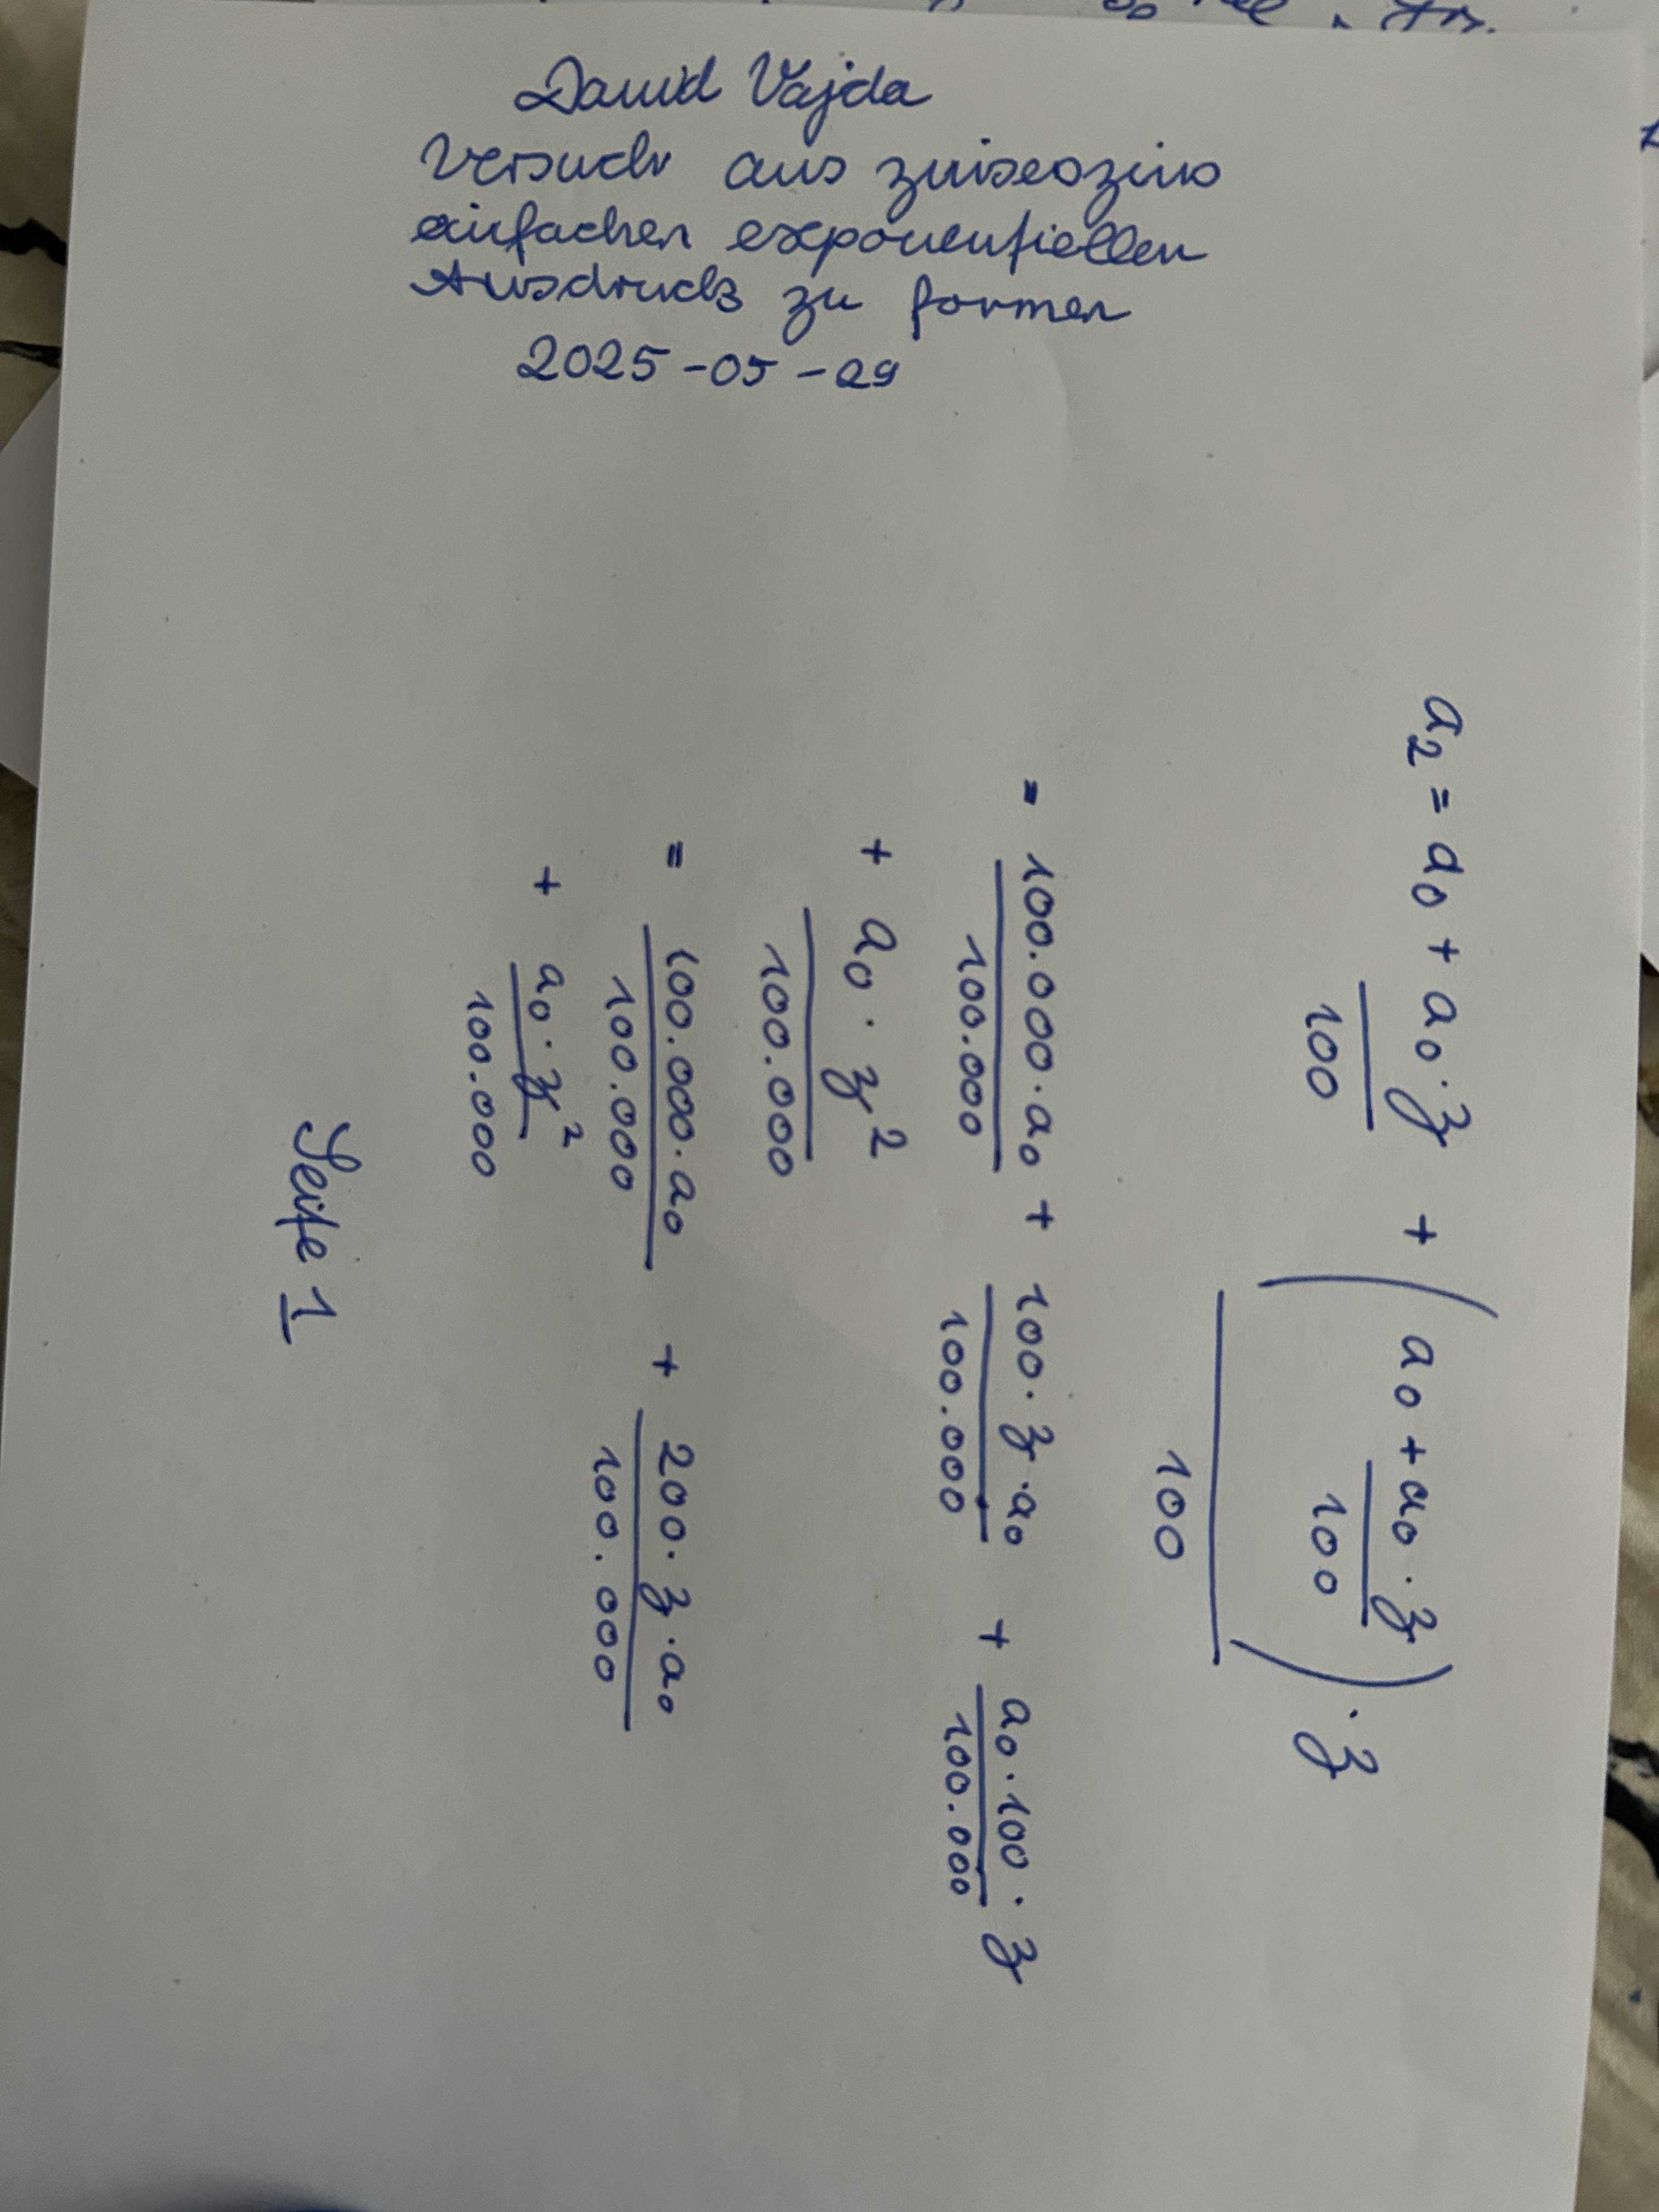 David Vajda
Versuch aus zinseszins
einfachen exponentiellen
Ausdruck zu formen
2025-05-29
a₂ = a₀ + a₀·z/100 + (a₀ + a₀·z/100)·z/100
= 100.000·a₀/100.000 + 100·z·a₀/100.000 + a₀·100·z/100.000
+ a₀·z²/100.000
= 100.000·a₀/100.000 + 200·z·a₀/100.000
+ a₀·z²/100.000
Seite 1